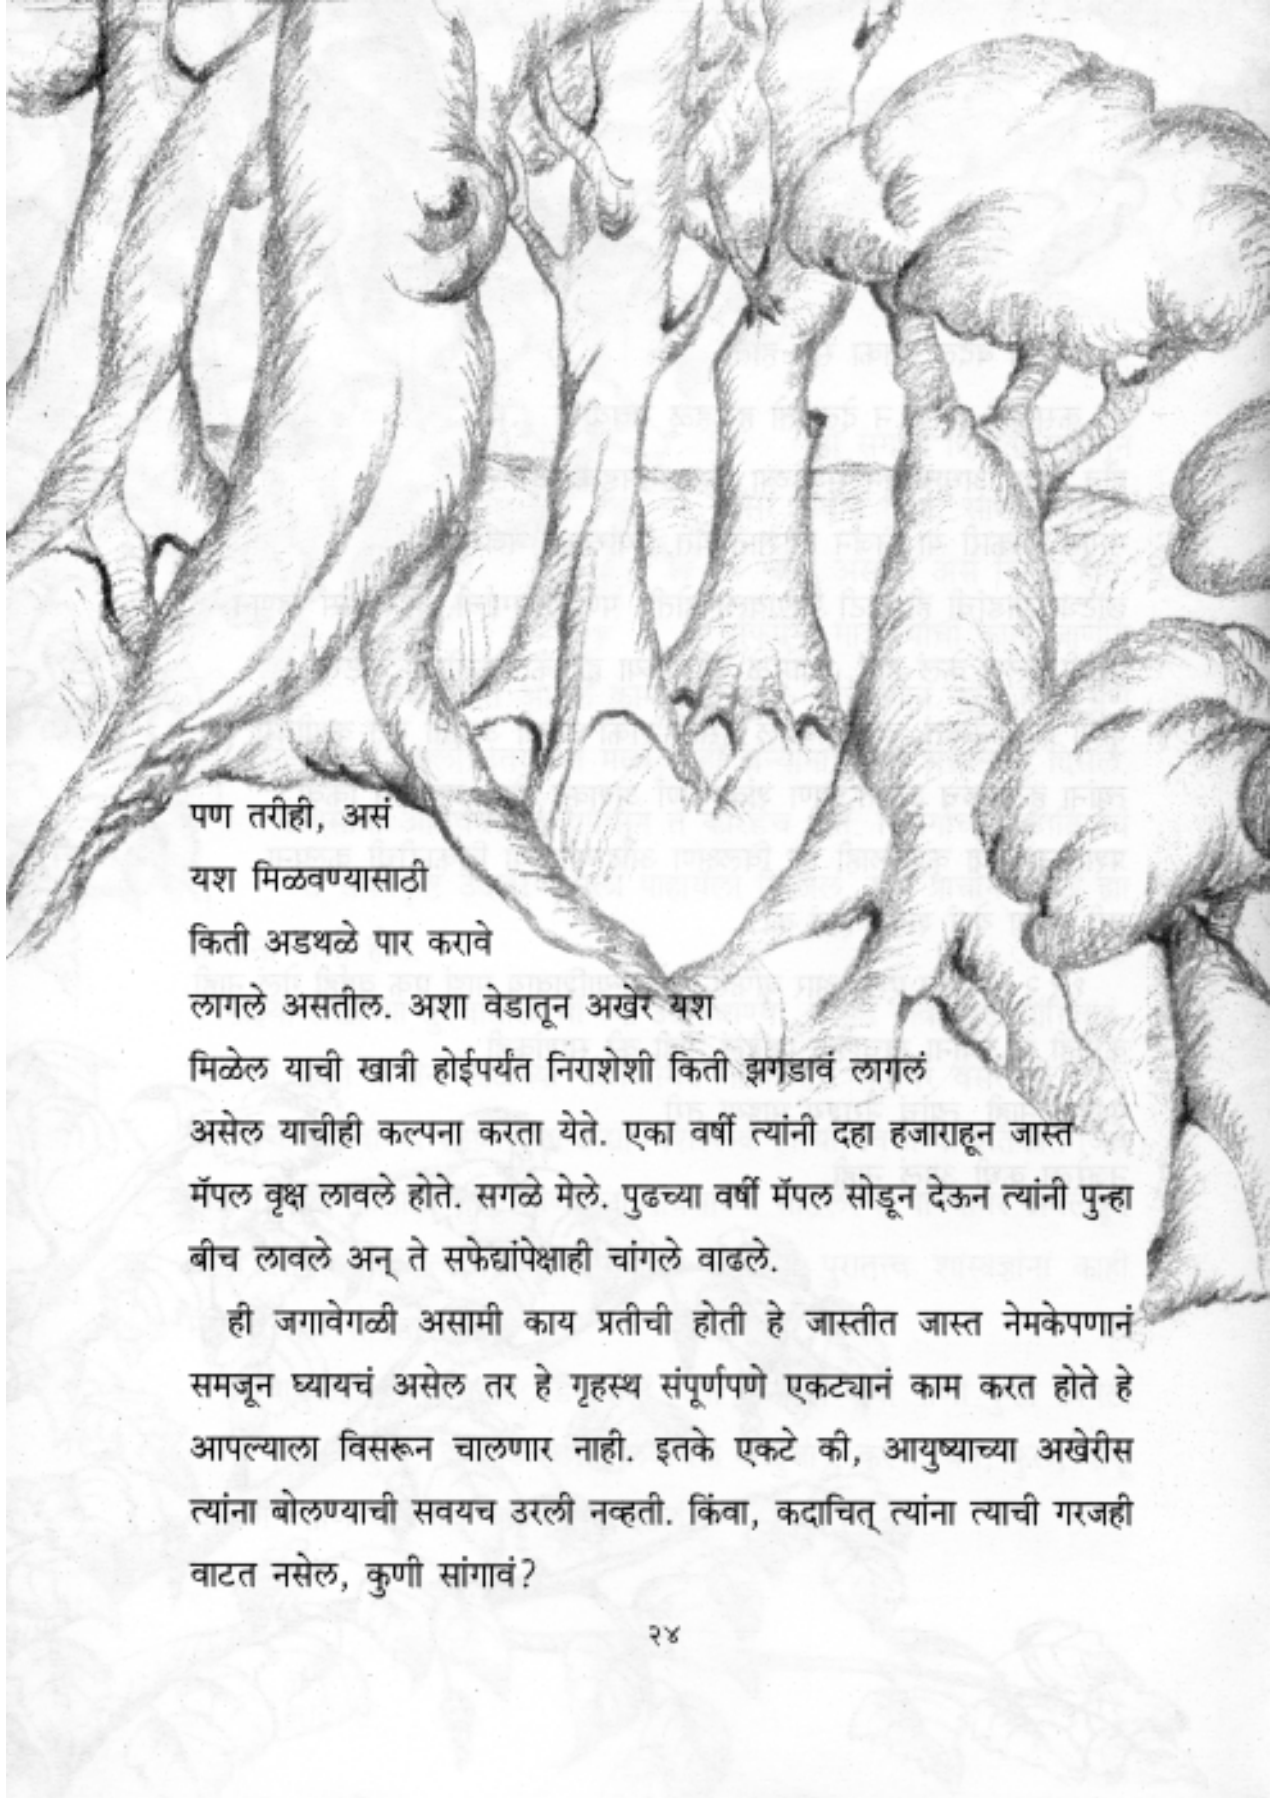 पण तरीही, असं
यश मिळवण्यासाठी
किती अडथळे पार करावे
लागले असतील. अशा वेडातून अखेर यश
मिळेल याची खात्री होईपर्यंत निराशेशी किती झगडावं लागलं
असेल याचीही कल्पना करता येते. एका वर्षी त्यांनी दहा हजाराहून जास्त
मॅपल वृक्ष लावले होते. सगळे मेले. पुढच्या वर्षी मॅपल सोडून देऊन त्यांनी पुन्हा
बीच लावले अन् ते सफेद्यांपेक्षाही चांगले वाढले.
ही जगावेगळी असामी काय प्रतीची होती हे जास्तीत जास्त नेमकेपणानं
समजून घ्यायचं असेल तर हे गृहस्थ संपूर्णपणे एकट्यानं काम करत होते हे
आपल्याला विसरून चालणार नाही. इतके एकटे की, आयुष्याच्या अखेरीस
त्यांना बोलण्याची सवयच उरली नव्हती. किंवा, कदाचित् त्यांना त्याची गरजही
वाटत नसेल, कुणी सांगावं?
२४